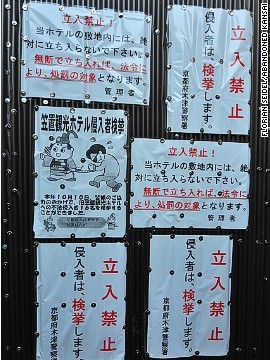 立入禁止!
当ホテルの敷地内には、絶
対に立ち入らないで下さい。
無断で立ち入れば、法令に
より、処罰の対象となります。
管理者
立入禁止
侵入者は、検挙します。
京都府木津警察署
笠置観光ホテル侵入者検挙
立入禁止!
当ホテルの敷地内には、絶
対に立ち入らないで下さい。
無断で立ち入れば、法令に
より、処罰の対象となります。
管理者
立入禁止
侵入者は、検挙します。
京都府木津警察署
立入禁止
侵入者は、検挙します。
京都府木津警察署
FLORIAN SEIDEL/ABANDONED KANSAI